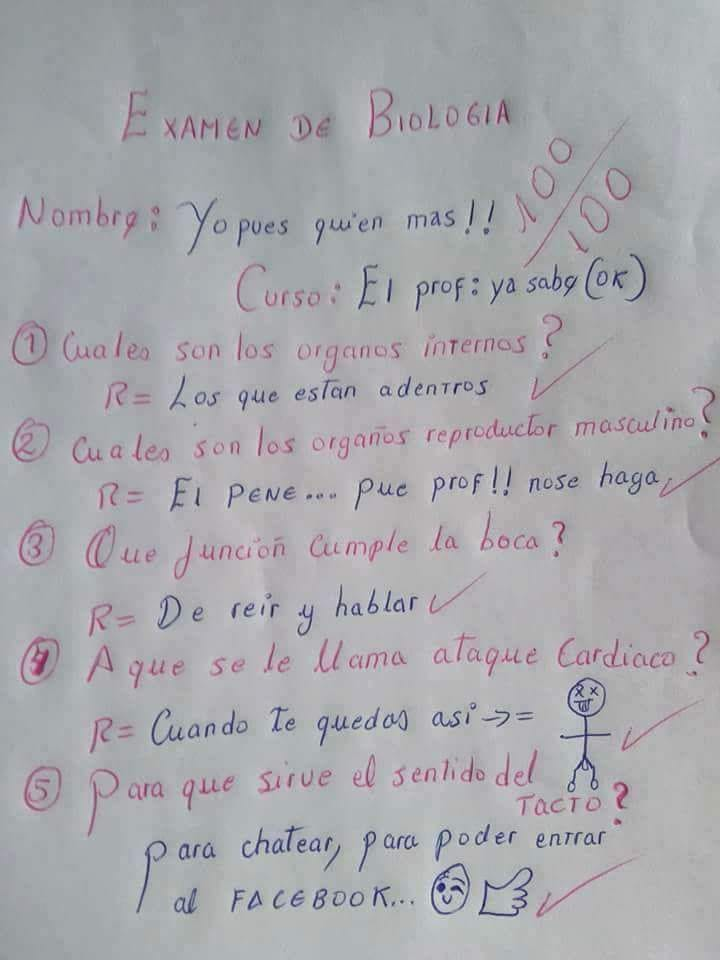 EXAMEN DE BIOLOGIA
100/100
Nombre: Yo pues quien mas!!
Curso: El prof: ya sabe (OK)
① Cuales son los organos internos?
R= Los que estan adentros
② Cuales son los organos reproductor masculino?
R= El PENE... pue prof!! nose haga
③ Que funcion cumple la boca?
R= De reir y hablar
④ A que se le llama ataque Cardiaco?
R= Cuando te quedas asi →=
⑤ Para que sirve el sentido del
TACTO?
para chatear, para poder entrar
al FACEBOOK...